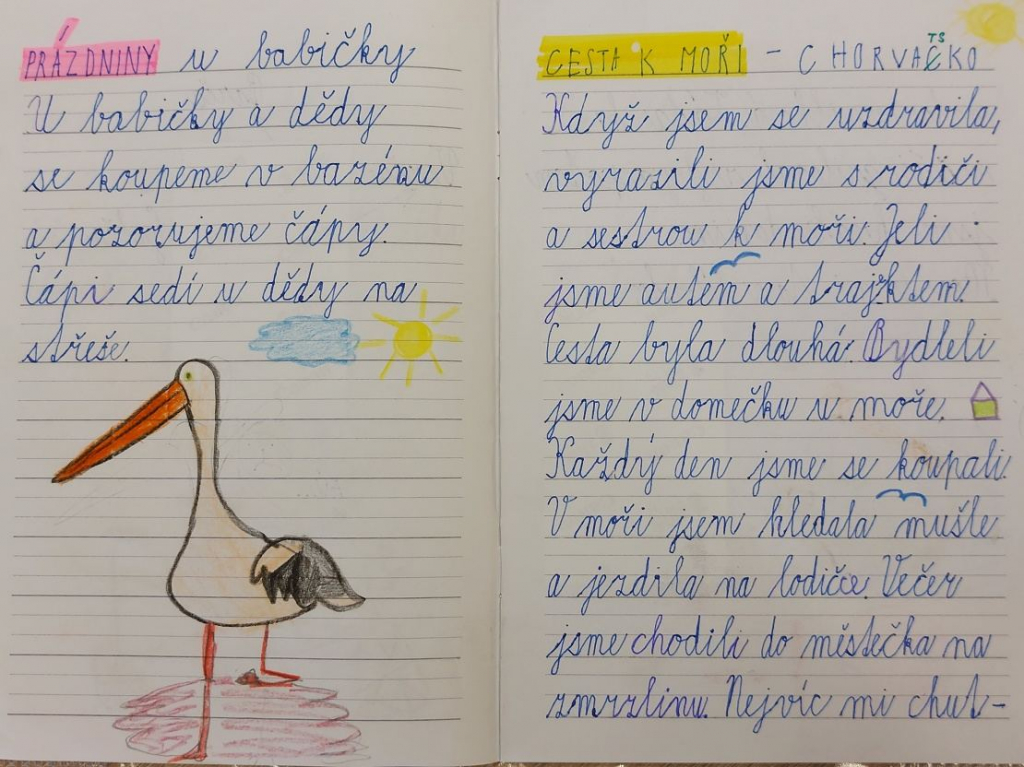 PRÁZDNINY u babičky
U babičky a dědy
se koupeme v bazénu
a pozorujeme čápy.
Čápi sedí u dědy na
střeše.
CESTA K MOŘI - CHORVATSKO
Když jsem se uzdravila,
vyrazili jsme s rodiči
a sestrou k moři. Jeli
jsme autem a trajektem.
Cesta byla dlouhá. Bydleli
jsme v domečku u moře.
Každý den jsme se koupali.
V moři jsem hledala mušle
a jezdila na lodičce. Večer
jsme chodili do městečka na
zmrzlinu. Nejvíc mi chut-